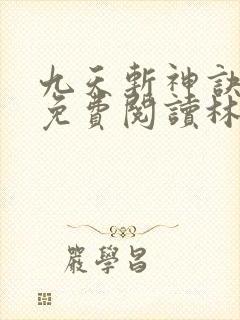 九天斬神訣
免費閱讀林
嚴學昌